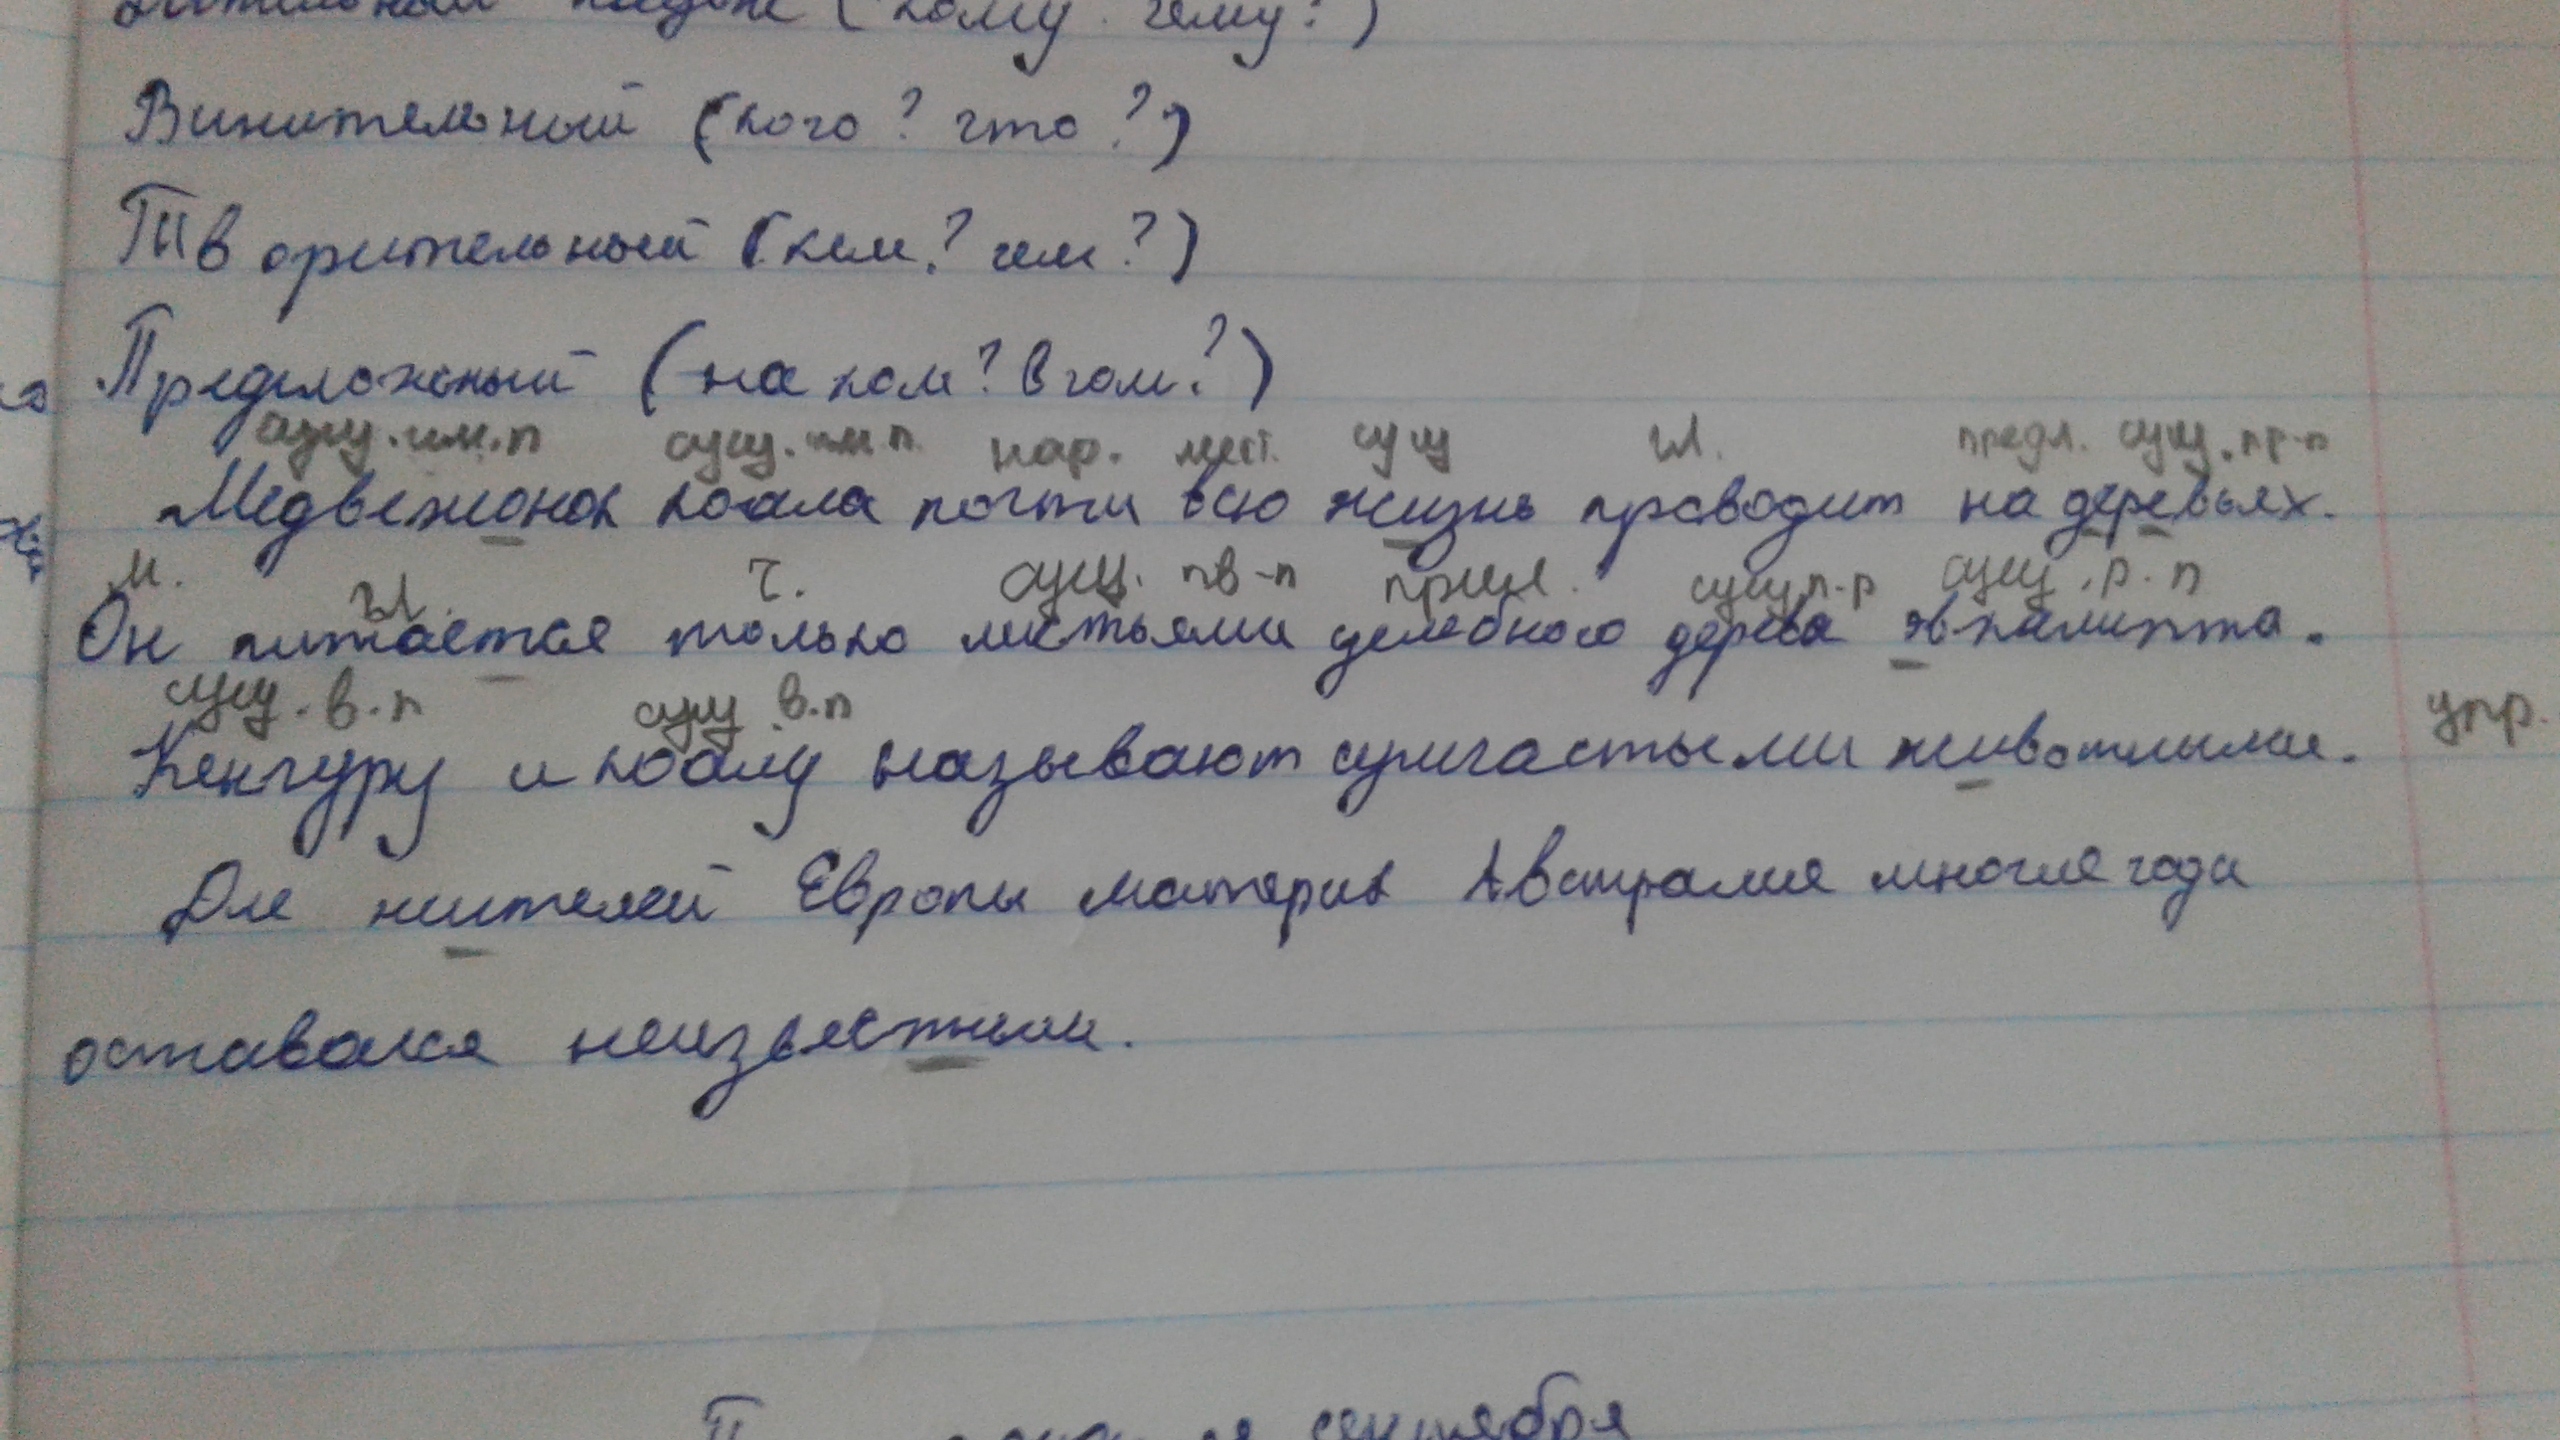 (кому? чему?)
Винительный (кого? что?)
Творительный (кем? чем?)
Предложный (на ком? в чом?)
сущ. им.п сущ. им п. нар. мест. сущ гл. предл. сущ. пр-п
Медвежонок коала почти всю жизнь проводит на деревьях.
м. гл. ч. сущ. тв-п прил. сущ р.п сущ. р. п
Он питается только листьями целебного дерева эвкалипта.
сущ. в.п сущ в.п упр.
Кенгуру и коалу называют сумчастыми животными.
Для жителей Европы материк Австралия многие годы
оставался неизвестным.
сентября